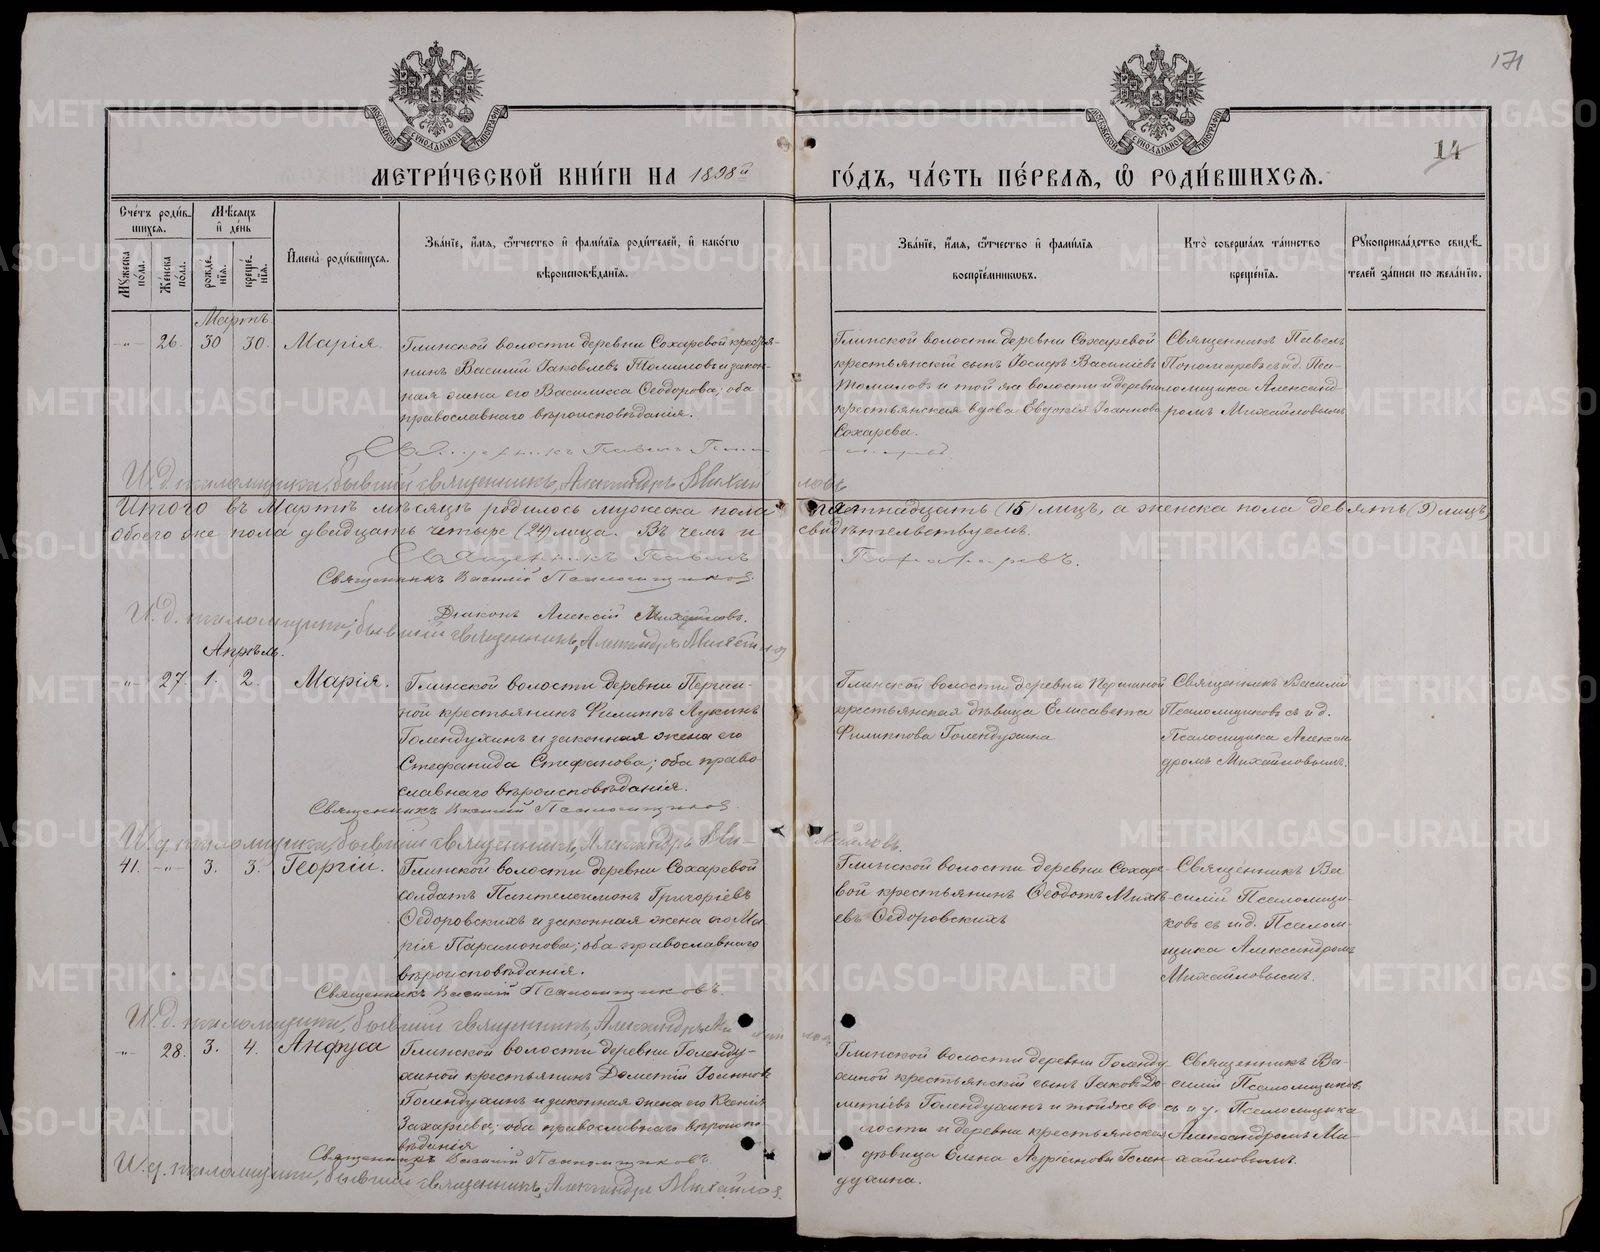 171
14
МЕТРИ́ЧЕСКОЙ КНИ́ГИ НА 1898й ГО́ДЪ, ЧА́СТЬ ПЕ́РВАЯ, Ѽ РОДИ́ВШИХСЯ.
Сче́тъ роди́в-
шихся.
Мѣ́сяцъ
и҆ де́нь
Мꙋ́жеска по́ла.
Же́нска по́ла.
рожде́нїя.
креще́нїя.
И҆мена̀ роди́вшихся.
Зва́нїе, и҆́мя, ѻ҆́тчество и҆ фами́лїя роди́телей, и҆ како́гѡ
вѣроисповѣ́данїя.
Зва́нїе, и҆́мя, ѻ҆́тчество и҆ фами́лїя
воспрїе́мниковъ.
Кто̀ соверша́лъ та́инство
креще́нїя.
Рꙋкоприкла́дство свидѣ́-
телей за́писи по жела́нїю.
Мартъ.
-„- 26. 30 30. Марія.
Глинской волости деревни Сохаревой крестья-
нинъ Василій Іаковлевъ Томиловъ и закон-
ная жена его Василисса Ѳеодорова; оба
православнаго вѣроисповѣданія.
Глинской волости деревни Сохаревой
крестьянскій сынъ Іосифъ Васильевъ
Томиловъ и той же волости и деревни
крестьянская вдова Евдокія Іоаннова
Сохарева.
Священникъ Павелъ
Пономаревъ съ и.д. Пса-
ломщика Александ-
ромъ Михайловымъ
Священникъ Павелъ Пономаревъ
И.д. псаломщика, бывшій священникъ, Александръ Михайловъ
Итого въ Мартѣ мѣсяцѣ родилось мужеска пола пятнадцать (15) лицъ, а женска пола девять (9) лицъ,
обоего же пола двадцать четыре (24) лица. Въ чемъ и свидѣтельствуемъ.
Священникъ Павелъ Пономаревъ.
Священникъ Василій Псаломщиковъ.
Діаконъ Алексій Михайловъ.
И.д. псаломщика, бывшій священникъ, Александръ Михайловъ
Апрѣль.
-„- 27. 1. 2. Марія.
Глинской волости деревни Першин-
ной крестьянинъ Филиппъ Лукинъ
Голендухинъ и законная жена его
Стефанида Стефанова; оба право
славнаго вѣроисповѣданія.
Глинской волости деревни Першиной
крестьянская дѣвица Елисавета
Филиппова Голендухина
Священникъ Василій
Псаломщиковъ съ и.д.
Псаломщика Алексан
дромъ Михайловымъ.
Священникъ Василій Псаломщиковъ.
И.д. псаломщика, бывшій священникъ, Александръ Михайловъ.
41. -„- 3. 3. Георгій.
Глинской волости деревни Сохаревой
солдатъ Пантелеимонъ Григоріевъ
Ѳедоровскихъ и законная жена его Ма-
рія Парамонова; оба православнаго
вѣроисповѣданія.
Глинской волости деревни Сохаре-
вой крестьянинъ Ѳеодотъ Михѣ-
евъ Ѳедоровскихъ
Священникъ Ва-
силій Псаломщи-
ковъ съ и.д. Псалом-
щика Александромъ
Михайловымъ.
Священникъ Василій Псаломщиковъ.
И.д. псаломщика, бывшій священникъ, Александръ Михайловъ
-„- 28. 3. 4. Анфуса
Глинской волости деревни Голенду-
хиной крестьянинъ Дометій Іоанновъ
Голендухинъ и законная жена его Ксенія
Захаріева; оба православнаго вѣроиспо
вѣданія
Глинской волости деревни Голенду
хиной крестьянскій сынъ Іаковъ До-
метіевъ Голендухинъ и той же во-
лости и деревни крестьянская
дѣвица Елена Адріанова Голен
духина.
Священникъ Ва-
силій Псаломщиковъ
съ и д. Псаломщика
Александромъ Ми-
хайловымъ.
Священникъ Василій Псаломщиковъ.
И.д. псаломщика, бывшій священникъ, Александръ Михайловъ.
METRIKI.GASO-URAL.RU